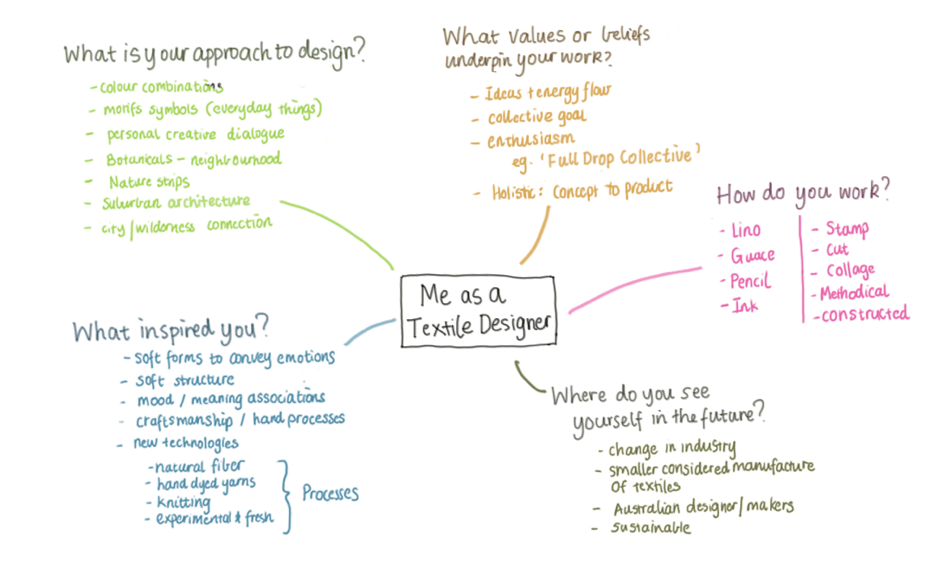 What is your approach to design?
- colour combinations
- morifs symbols (everyday things)
- personal creative dialogue
- Botanicals - neighbourhood
- Nature strips
- Suburban architecture
- city/wilderness connection
What values or beliefs
underpin your work?
- Ideas + energy flow
- collective goal
- enthusiasm
eg. 'Full Drop Collective'
- Holistic: Concept to product
How do you work?
- Lino
- Guace
- Pencil
- Ink
- Stamp
- Cut
- Collage
- Methodical
- constructed
Me as a
Textile Designer
What inspired you?
- soft forms to convey emotions
- soft structure
- mood / meaning associations
- craftsmanship / hand processes
- new technologies
- natural fiber
- hand dyed yarns
- knitting
- experimental & fresh
Processes
Where do you see
yourself in the future?
- change in industry
- smaller considered manufacture
of textiles
- Australian designer/makers
- sustainable